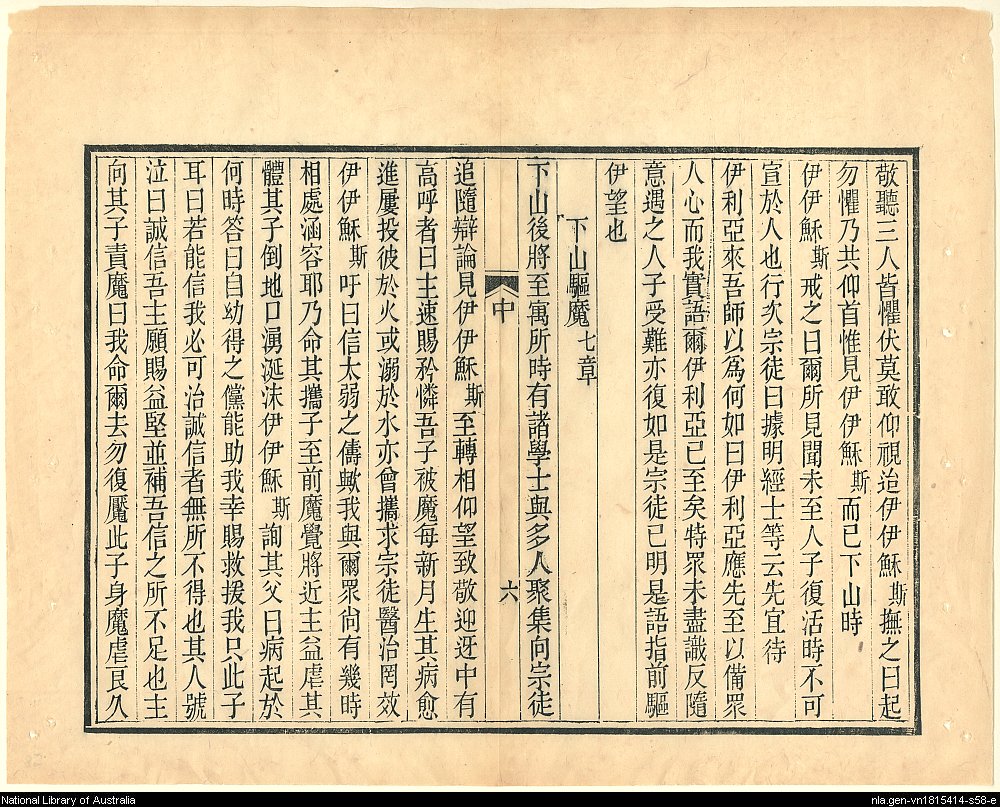 敬聽三人皆懼伏莫敢仰視迨伊伊穌斯撫之曰起
勿懼乃共仰首惟見伊伊穌斯而已下山時
伊伊穌斯戒之曰爾所見聞未至人子復活時不可
宣於人也行次宗徒曰據明經士等云先宜待
伊利亞來吾師以爲何如曰伊利亞應先至以備眾
人心而我實語爾伊利亞已至矣特眾未盡識反隨
意遇之人子受難亦復如是宗徒已明是語指前驅
伊望也
下山驅魔七章
下山後將至寓所時有諸學士與多人聚集向宗徒
中
六
追隨辯論見伊伊穌斯至轉相仰望致敬迎迓中有
高呼者曰主速賜矜憐吾子被魔每新月生其病愈
進屢投彼於火或溺於水亦曾攜求宗徒醫治罔效
伊伊穌斯吁曰信太弱之儔歟我與爾眾尚有幾時
相處涵容耶乃命其攜子至前魔覺將近主益虐其
體其子倒地口湧涎沫伊伊穌斯詢其父曰病起於
何時答曰自幼得之儻能助我幸賜救援我只此子
耳曰若能信我必可治誠信者無所不得也其人號
泣曰誠信吾主願賜益堅並補吾信之所不足也主
向其子責魔曰我命爾去勿復魘此子身魔虐良久
National Library of Australia
nla.gen-vn1815414-s58-e